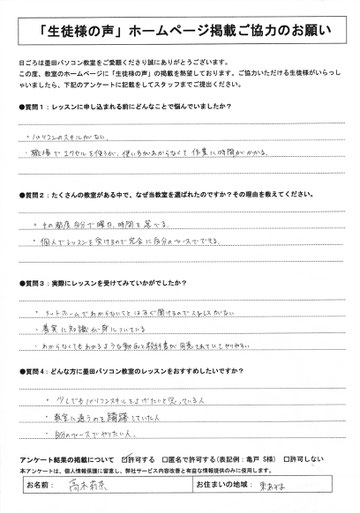 「生徒様の声」ホームページ掲載ご協力のお願い
日ごろは墨田パソコン教室をご愛顧くださり誠にありがとうございます。
この度、教室のホームページに「生徒様の声」の掲載を熱望しております。ご協力いただける生徒様がいらっし
ゃいましたら、下記のアンケートに記載をしてスタッフまでご提出ください。
●質問1：レッスンに申し込まれる前にどんなことで悩んでいましたか？
・パソコンのスキルがない。
・職場でエクセルを使うが、使い方がわからなくて作業に時間がかかる。
●質問2：たくさんの教室がある中で、なぜ当教室を選ばれたのですか？その理由を教えてください。
・その都度自分で曜日、時間を選べる。
・個人でレッスンを受けるので完全に自分のペースでできる。
●質問3：実際にレッスンを受けてみていかがでしたか？
・アットホームでわからないことはすぐ聞けるのでストレスがない
・着実に知識が身についている
・わからなくてもわかるような動画と教科書が用意されていてやりやすい
●質問4：どんな方に墨田パソコン教室のレッスンをおすすめしたいですか？
・少しでもパソコンスキルを上げたいと思っている人
・教室に通うのを躊躇していた人
・自分のペースでやりたい人。
アンケート結果の掲載について ☑許可する □匿名で許可する(表記例：亀戸 S様) □許可しない
本アンケートは、個人情報保護に留意し、弊社サービス内容改善と有益な情報提供のみに使用します。
お名前： 高木莉奈 お住まいの地域：